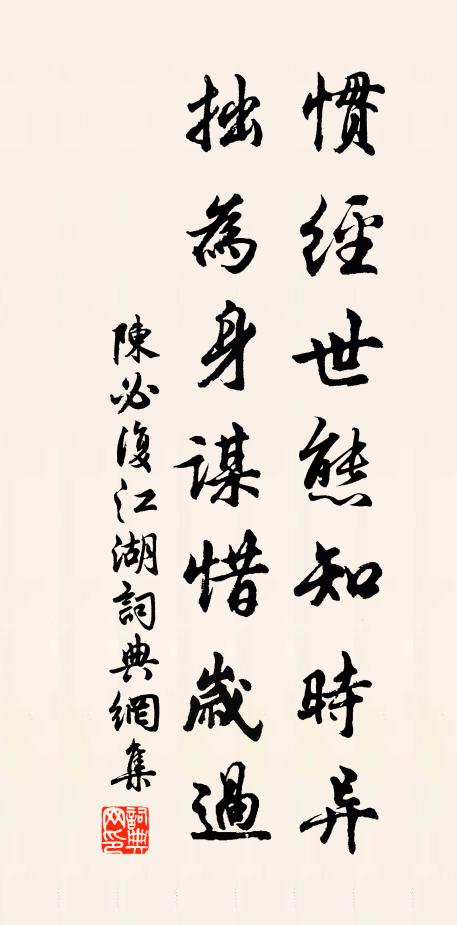 慣經世態知時异
拙為身謀惜歲過
陳必復江湖詞典網集
詞典網印